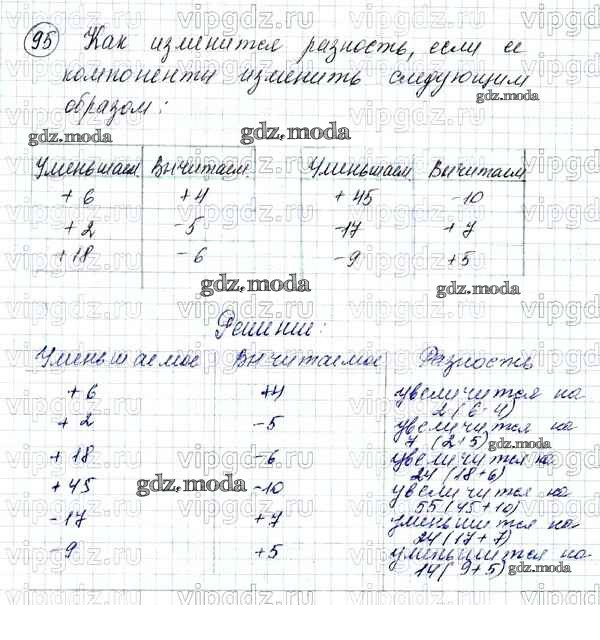 95 Как изменится разность, если ее
компоненты изменить следующим
образом:
gdz.moda
gdz.moda
gdz.moda
Уменьшаем. Вычитаем. Уменьшаем. Вычитаем.
+6 +4 +45 -10
+2 -5 -17 +7
+18 -6 -9 +5
gdz.moda
gdz.moda
Решение:
Уменьшаемое Вычитаемое Разность
+6 +4 увеличится на
2 (6-4)
+2 -5 увеличится на
7 (2+5) gdz.moda
+18 -6 увеличится на
24 (18+6)
gdz.moda
+45 -10 увеличится на
55 (45+10)
-17 +7 уменьшится на
24 (17+7)
-9 +5 уменьшится на
14 (9+5) gdz.moda
vipgdz.ru